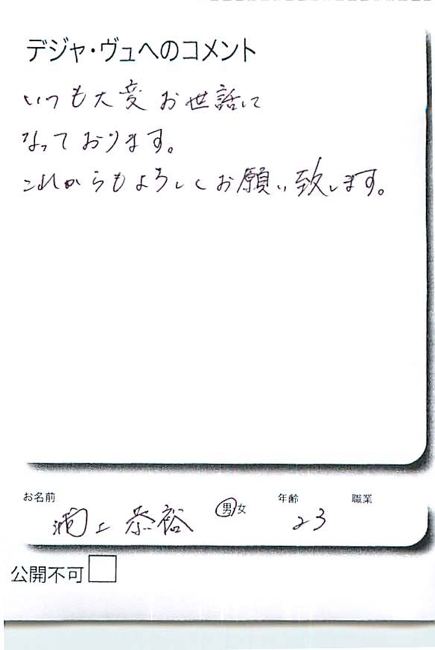 デジャ・ヴュへのコメント
いつも大変お世話に
なっております。
これからもよろしくお願い致します。
お名前 浦上 恭裕 男女 年齢 23 職業
公開不可